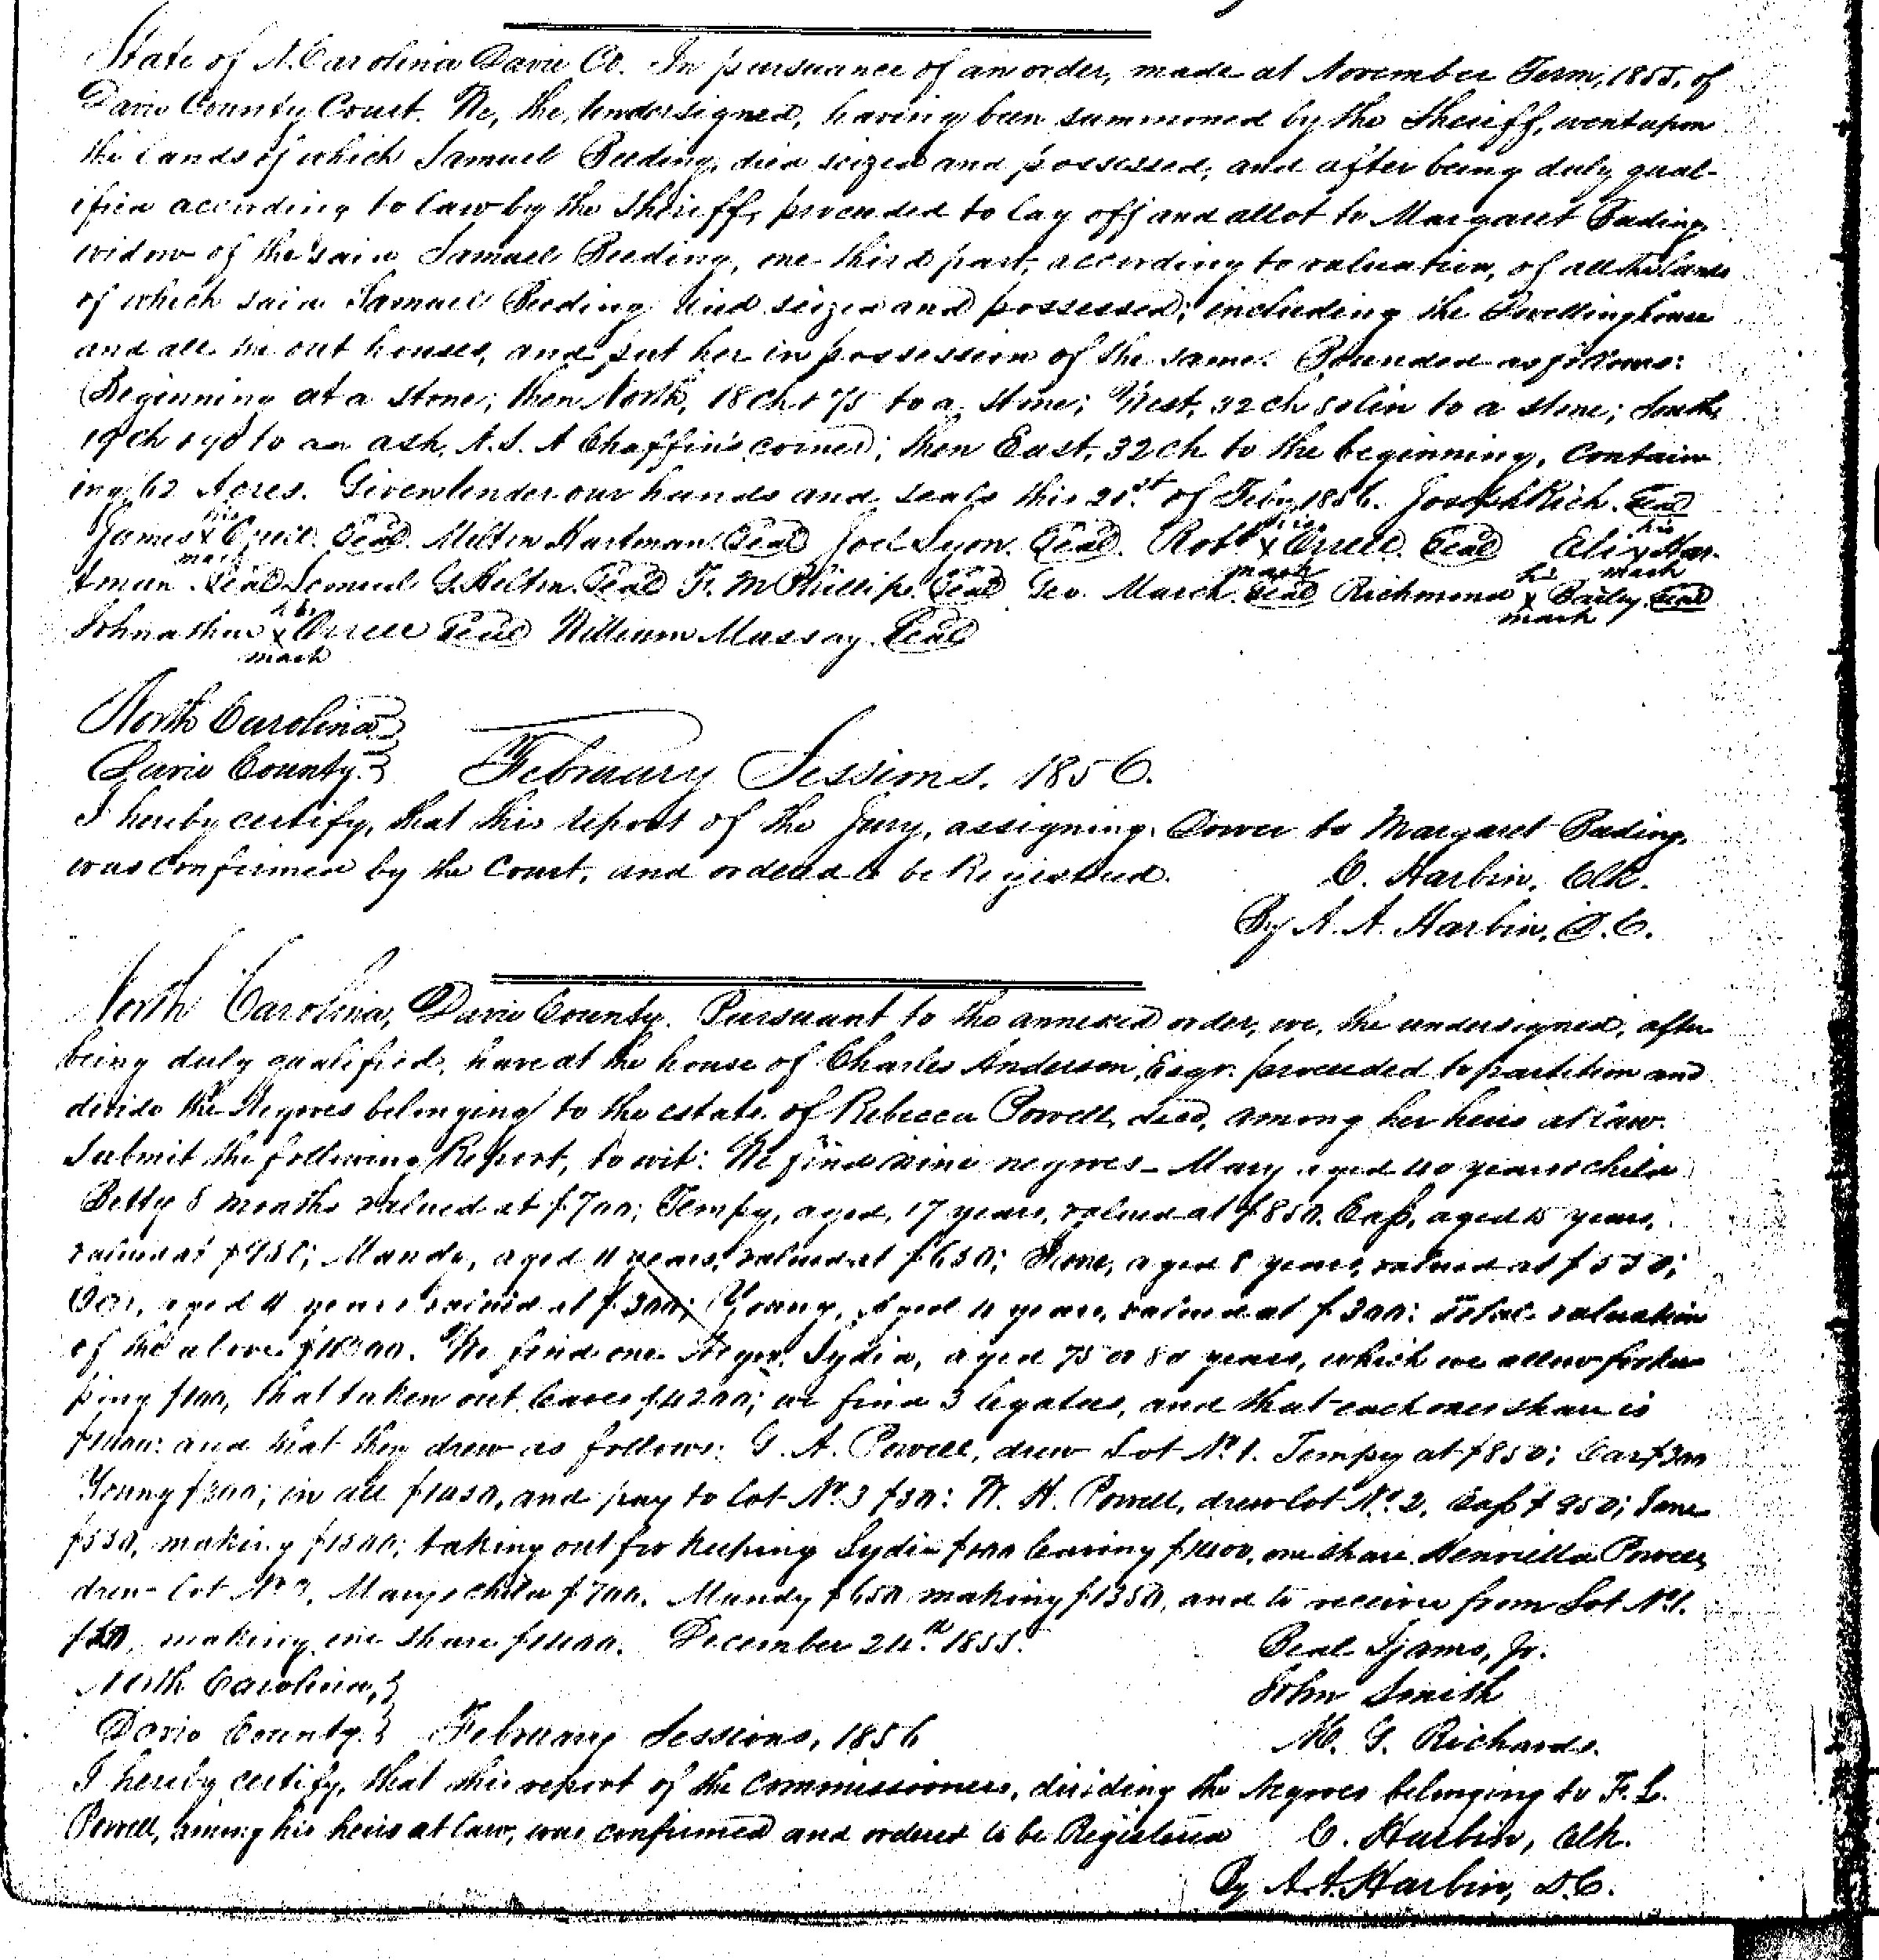 State of N. Carolina Davie Co. In pursuance of an order, made at November Term, 1855, of
Davie County Court. We, the Undersigned, having been summoned by the Sheriff, went upon
the lands of which Samuel Beeding, died seized and possessed, and after being duly qual-
ified according to law by the Sheriff, proceeded to lay off and allot to Margaret Beeding
widow of the said Samuel Beeding, one third part, according to valuation, of all the lands
of which said Samuel Beeding died seized and possessed; including the Dwelling house
and all the out houses, and put her in possession of the same. Bounded as follows:
Beginning at a stone; then North, 18 ch & 75 to a stone; West, 32 ch 80 lin to a stone; South
19 ch & 90 to an ash, N. S. A Chaffin's corner; then East, 32 ch to the beginning, Contain
ing 62 Acres. Given Under our hands and seals this 21st of Feby 1856. Joseph Rich. Seal
James his x mark Orrell. Seal. Milton Hartman. Seal Joel Lyon. Seal. Robt his x mark Orrell. Seal Eli his x mark Har-
tman. Seal Lemuel G. Helton. Seal F. M Phillips. Seal Geo. March. Seal Richmond his x mark Bailey. Seal
Johnathan his x mark Orrell Seal William Massay. Seal
North Carolina }
Davie County. } February Sessions. 1856.
I hereby certify, that this report of the Jury, assigning Dower to Margaret Beeding,
was confirmed by the Court, and ordered to be Registered.
C. Harbin, Clk.
By A. A. Harbin, D. C.
North Carolina, Davie County. Pursuant to the annexed order, we, the undersigned, after
being duly qualified, have at the house of Charles Anderson, Esqr. proceeded to partition and
divide the Negroes belonging to the estate of Rebecca Powell, decd, among her heirs at law.
Submit the following Report, to wit: We find nine negroes - Mary aged 40 years & child
Betty 8 months valued at $700; Tempy, aged, 17 years, valued at $850. Cap, aged 15 years,
valued at $950; Mandy, aged 11 years, valued at $650; Jane, aged 8 years, valued at $550;
Car, aged 4 years valued at $300; Young, aged 4 years, valued at $300: Total valuation
of the above $4300. We find one Negro, Lydia, aged 75 or 80 years, which we allow for kee
ping $100, that taken out leaves $4200; we find 3 legatees, and that each ones share is
$1400: and that they drew as follows: G. A. Powell, drew Lot No. 1. Tempey at $850; Car $300
Young $300; in all $1450, and pay to lot No. 3 $50: W. H. Powell, drew lot No. 2, Cap $950; Jane
$550, making $1500; taking out for keeping Lydia $100 leaving $1400, one share. Henrietta Powell,
drew lot No 3, Mary & child $700. Mandy $650 making $1350, and to receive from Lot No 1.
$50, making one share $1400. December 24th 1855.
Beal Ijams, Jr.
North Carolina, }
John Smith
Davie County. } February Sessions, 1856
M. G. Richards.
I hereby certify, that this report of the Commissioners, dividing the Negroes belonging to F. L.
Powell, among his heirs at law, was confirmed and ordered to be Registered C. Harbin, Clk.
By A. A. Harbin, D. C.